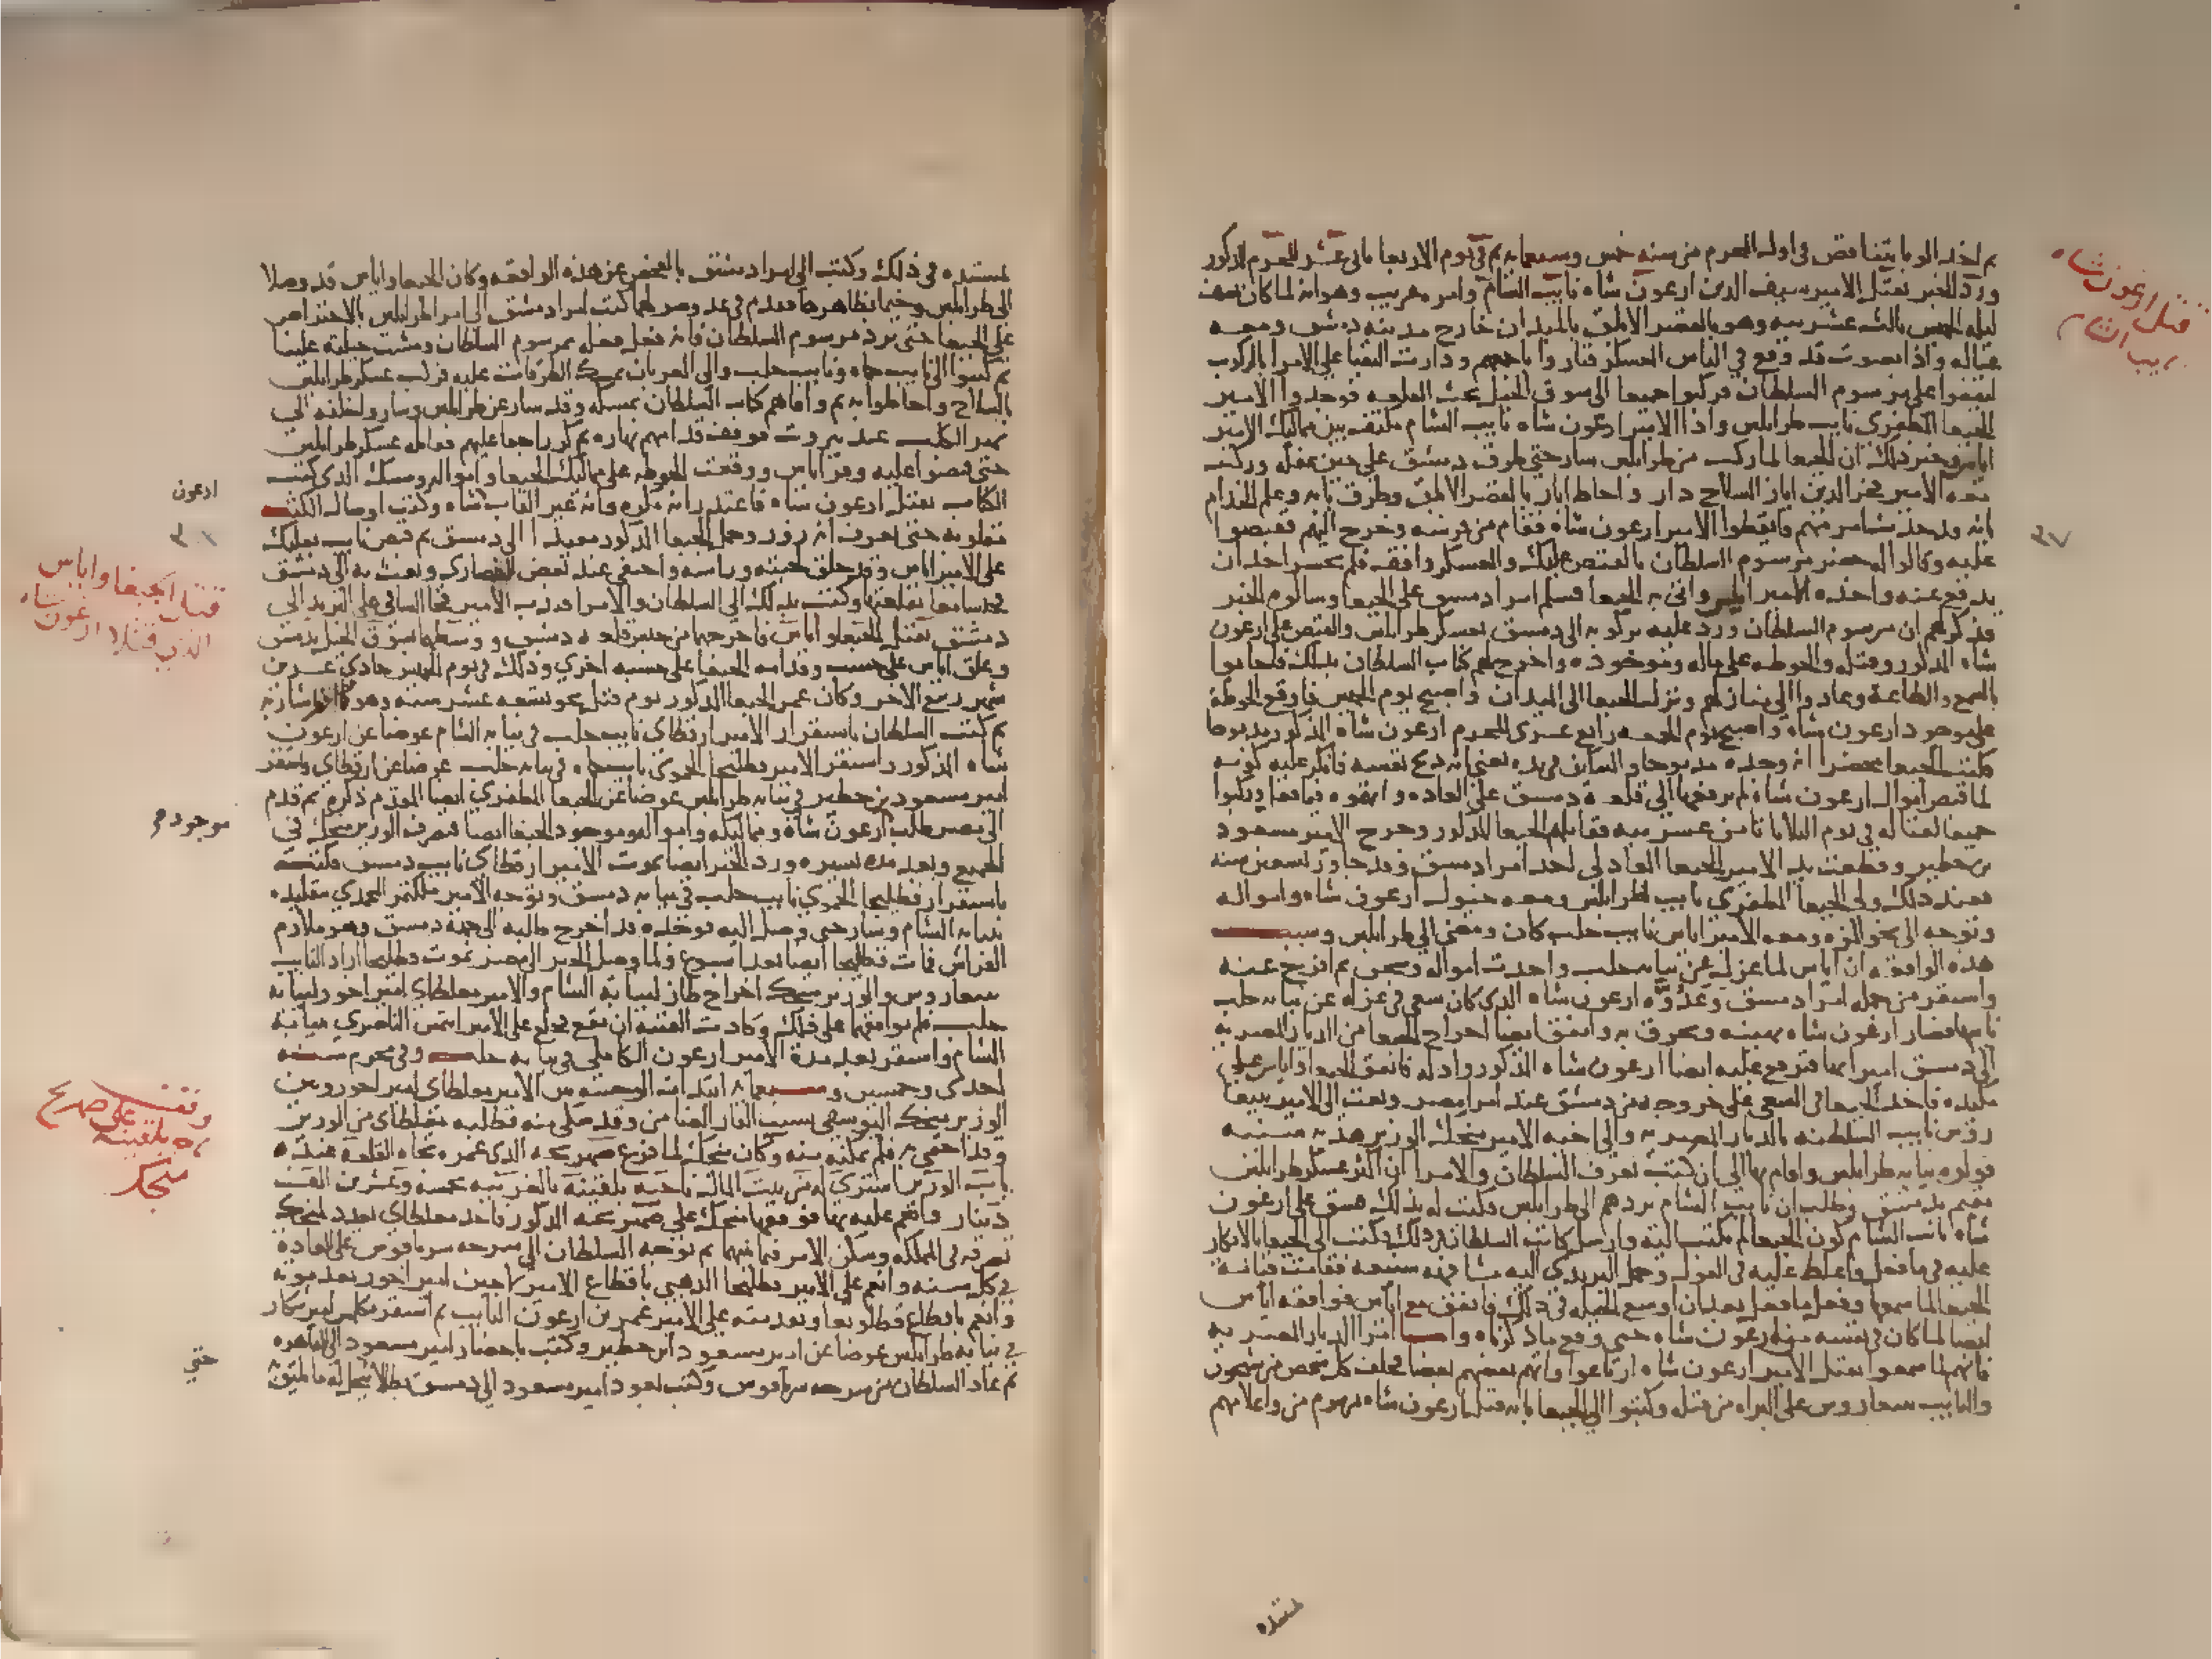 ثم اخذ الوبا يتناقص في اول المحرم من سنه خمس وسبعمايه ثم في يوم الاربعا ثاني عشر المحرم المذكور
ورد الخبر بقتل الامير سيف الدين ارغون شاه نايب الشام وامره غريب وهو انه لما كان نصف
ليله الخميس ثالث عشرينه وهو بالقصر الابلق بالميدان خارج مدينه دمشق ومعه
عياله واذا بصوت قد وقع في الناس العسكر فثاروا باجمعهم ودارت النقبا على الامرا بالركوب
ليقفوا على مرسوم السلطان فركبوا جميعا الى سوق الخيل تحت القلعه فوجدوا الامير
الجيبغا المظفري نايب طرابلس واذا الامير ارغون شاه نايب الشام مكتف بين مماليك الامير
اياس وخبر ذلك ان الجيبغا لما ركب من طرابلس سار حتى طرق دمشق على حين غفله وركب
معه الامير فخر الدين اياز السلاح دار واحاط اياز بالقصر الابلق وطرق بابه وعلم الخدام
بانه قد حدث امر مهم فايقظوا الامير ارغون شاه فقام من فرشه وخرج اليهم فقبضوا
عليه وقالوا له حضر مرسوم السلطان بالقبض عليك والعسكر واقف فلم يجسر احد ان
يدفع عنه واخذه الامير اياس واتى به الجيبغا فسلم امرا دمشق على الجيبغا وسالوه الخبر
فذكر لهم ان مرسوم السلطان ورد عليه بركوبه الى دمشق بعسكر طرابلس والقبض على ارغون
شاه المذكور وقتله والحوطه على ماله وموجوده واخرج لهم كتاب السلطان بذلك فاجابوا
بالسمع والطاعه وعادوا الى منازلهم ونزل الجيبغا الى الميدان واصبح يوم الخميس فاوقع الحوطه
على موجود ارغون شاه واصبح يوم الجمعه رابع عشرى المحرم ارغون شاه المذكور مذبوحا
فكتب الجيبغا محضرا انه وجده مذبوحا والسكين في يده يعني انه ذبح نفسه فانكر عليه كونه
لما قبض اموال ارغون شاه لم يرفعها الى قلعة دمشق على العاده واتهموه فيما فعل وركبوا
جميعا لقتاله في يوم الثلاثا ثامن عشرينه فقاتلهم الجيبغا المذكور وجرح الامير مسعود
بن خطير وقطعت يد الامير الجيبغا العادلي احد امرا دمشق وقد جاوز تسعين سنه
فعند ذلك ولى الجيبغا المظفري نايب طرابلس ومعه خيول ارغون شاه وامواله
وتوجه الى نحو المزه ومعه الامير اياس نايب حلب كان ومضى الى طرابلس وسبب
هذه الواقعه ان اياس لما عزل عن نيابه حلب واخذت امواله وسجن ثم افرج عنه
واستقر من جمله امرا دمشق وعدوه ارغون شاه الذي كان سعى في عزله عن نيابه حلب
نايبها فصار ارغون شاه يهينه ويخرق به واتفق ايضا اخراج الجيبغا من الديار المصريه
الى دمشق اميرا بها فترفع عليه ايضا ارغون شاه المذكور واذله فاتفق الجيبغا واياس على
مكيده فاخذ الجيبغا في السعي على خروجه من دمشق عند امرا مصر وبعث الى الامير بيبغا
روس نايب السلطنه بالديار المصريه والى اخيه الامير منجك الوزير هديه سنيه
فولوه نيابه طرابلس واقام بها الى ان كتب يعرف السلطان والامرا ان اكثر عسكر طرابلس
مقيم بدمشق وطلب ان نايب الشام يردهم الى طرابلس فكتب له بذلك فشق على ارغون
شاه نايب الشام كون الجيبغا لم يكتب اليه وارسل كاتب السلطان في ذلك وكتب الى الجيبغا بالانكار
عليه فيما فعل واغلظ عليه في القول وحمل البريدى اليه مشافهه شنيعه فقامت قيامه
الجيبغا لما سمعها وفعل ما فعل بعد ان اوسع الحيله في ذلك فاتفق مع اياس فوافقه اياس
ايضا لما كان في نفسه من ارغون شاه حتى وقع ما ذكرناه واما امرا الديار المصريه
فانهم لما سمعوا بقتل الامير ارغون شاه ارتاعوا واتهم بعضهم بعضا فحلف كل من شيخون
والنايب بيبغا روس على البراه من قتله وكتبوا الى الجيبغا بانه قتل ارغون شاه بمرسوم من واعلامهم
قتل ارغون شاه
نايب الشام
٣٧
مستنده
مستنده في ذلك وكتب الى امرا دمشق بالفحص عن هذه الواقعه وكان الجيبغا واياس قد وصلا
الى طرابلس وخيما بظاهرها فقدم في غد وصولهما كتب امرا دمشق الى امرا طرابلس بالاحتراص
على الجيبغا حتى يرد مرسوم السلطان فانه فعل فعله بغير مرسوم السلطان ومشت حيلته علينا
ثم كتبوا الى نايب حماه ونايب حلب والى العربان بمسك الطرقات عليه فركب عسكر طرابلس
بالسلاح واحاطوا به ثم وافاهم كتاب السلطان بمسكه وقد سار عن طرابلس وساروا خلفه الى
نهر الكلب عند بيروت فوقف قدامهم نهاره ثم كر راجعا عليهم فقاتله عسكر طرابلس
حتى قبضوا عليه وفر اياس ووقعت الحوطه على مماليك الجيبغا وامواله ومسك الذي كتب
الكتاب بقتل ارغون شاه فاعتذر بانه مكره وانه غير القاب شاه وكتب اوصال الكتب
مقلوبه حتى يعرف انه زور وحمل الجيبغا المذكور مقيدا الى دمشق ثم قبض نايب بعلبك
على الامير اياس وقد حلق لحيته وراسه واختفى عند بعض النصارى وبعث به الى دمشق
فحبسا معا بقلعتها وكتب بذلك الى السلطان والامرا فندب الامير قجا الساقي على البريد الى
دمشق بقتل الجيبغا واياس فاخرجهما من حبس قلعة دمشق ووسطهما بسوق الخيل بدمشق
وعلق اياس على خشبه وقدامه الجيبغا على خشبه اخرى وذلك في يوم الخميس حادي عشرين
شهر ربيع الاخر وكان عمر الجيبغا المذكور يوم قتل نحو تسعه عشر سنه وهو ما طر شاربه
ثم كتب السلطان باستقرار الامير ارقطاي نايب حلب في نيابه الشام عوضا عن ارغون
شاه المذكور واستقر الامير قطليجا الحموي نايب حماه في نيابه حلب عوضا عن ارقطاي واستقر
امير مسعود بن خطير في نيابه طرابلس عوضا عن الجيبغا المظفري ايضا المقدم ذكره ثم قدم
الى مصر طلب ارغون شاه ومماليكه وامواله وموجود الجيبغا ايضا فتصرف الوزير منجك في
الجميع وبعد مده يسيره ورد الخبر ايضا بموت الامير ارقطاي نايب دمشق فكتب
باستقرار قطليجا الحموي نايب حلب في نيابه دمشق وتوجه الامير ملكتمر المحمدي بتقليده
بنيابه الشام وسار حتى وصل اليه فوجده قد اخرج طلبه الى جهة دمشق وهو ملازم
الفراش فمات قطليجا ايضا بعد اسبوع ولما وصل الخبر الى مصر بموت قطليجا اراد النايب
بيبغا روس والوزير منجك اخراج طاز لنيابة الشام والامير مغلطاي امير اخور لنيابه
حلب فلم يوافقهما على ذلك وكادت الفتنه ان تقع فخلع على الامير ايتمش الناصري بنيابة
الشام واستقر بعد مدة الامير ارغون الكاملي في نيابه حلب وفي محرم سنه
احدى وخمسين وسبعمايه ابتدات الوحشه بين الامير مغلطاي امير اخور وبين
الوزير منجك اليوسفي بسبب الفار الضامن وقد شكى منه فطلبه مغلطاي من الوزير
وقد احتمى به فلم يمكنه منه وكان منجك لما فرغ صهريجه الذي عمره تجاه القلعة عند
باب الوزير اشترى له من بيت المال ناحيه بلقينة بالغربيه بخمسه وعشرين الف
دينار وانعم عليه بها فوقفها منجك على صهريجه المذكور فاخذ مغلطاي يعدد لمنجك
تصرفه في المملكه وسكن الامر فيما بينهما ثم توجه السلطان الى سرحه سرياقوس على العادة
في كل سنه وانعم على الامير قطليجا الذهبي باقطاع الامير لاجين امير اخور بعد موته
وانعم باقطاع قطلوبغا وتقدمته على الامير عمر بن ارغون النايب ثم استقر بكلمش امير شكار
في نيابه طرابلس عوضا عن امير مسعود ابن خطير وكتب باحضار امير مسعود الى القاهره
ثم عاد السلطان من سرحه سرياقوس وكتب بعود امير مسعود الى دمشق بطالا
ارغون
قتل الجيبغا واياس
الذين قتلا ارغون شاه
موجودهم
وقف على صهريج
ناحية بلقينه
منجك
حتى